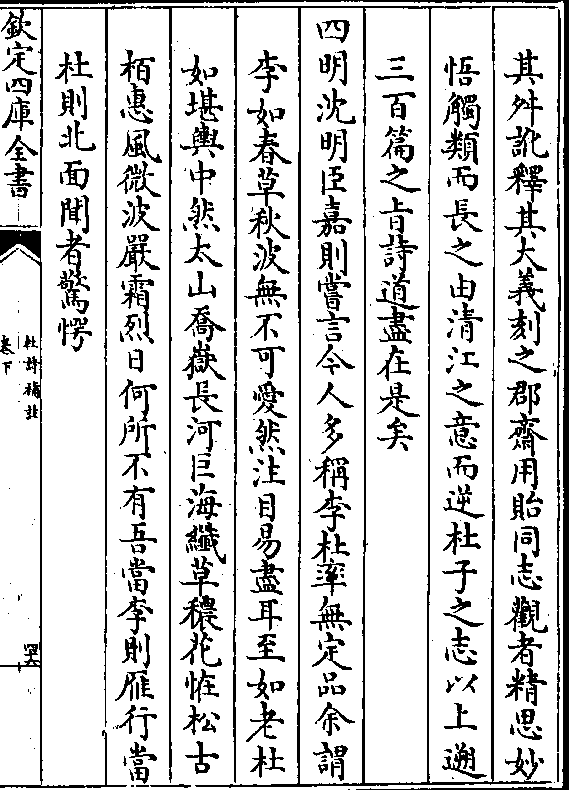 其舛訛釋其大義刻之郡齋用貽同志觀者精思妙
悟觸類而長之由清江之意而逆杜子之志以上遡
三百篇之㫖詩道盡在是矣
四明沈明臣嘉則嘗言今人多稱李杜率無定品余謂
李如春草秋波無不可愛然注目易盡耳至如老杜
如堪輿中然太山喬嶽長河巨海纎草穠花怪松古
栢惠風微波嚴霜烈日何所不有吾當李則雁行當
杜則北面聞者驚愕
欽定四庫全書
卷下